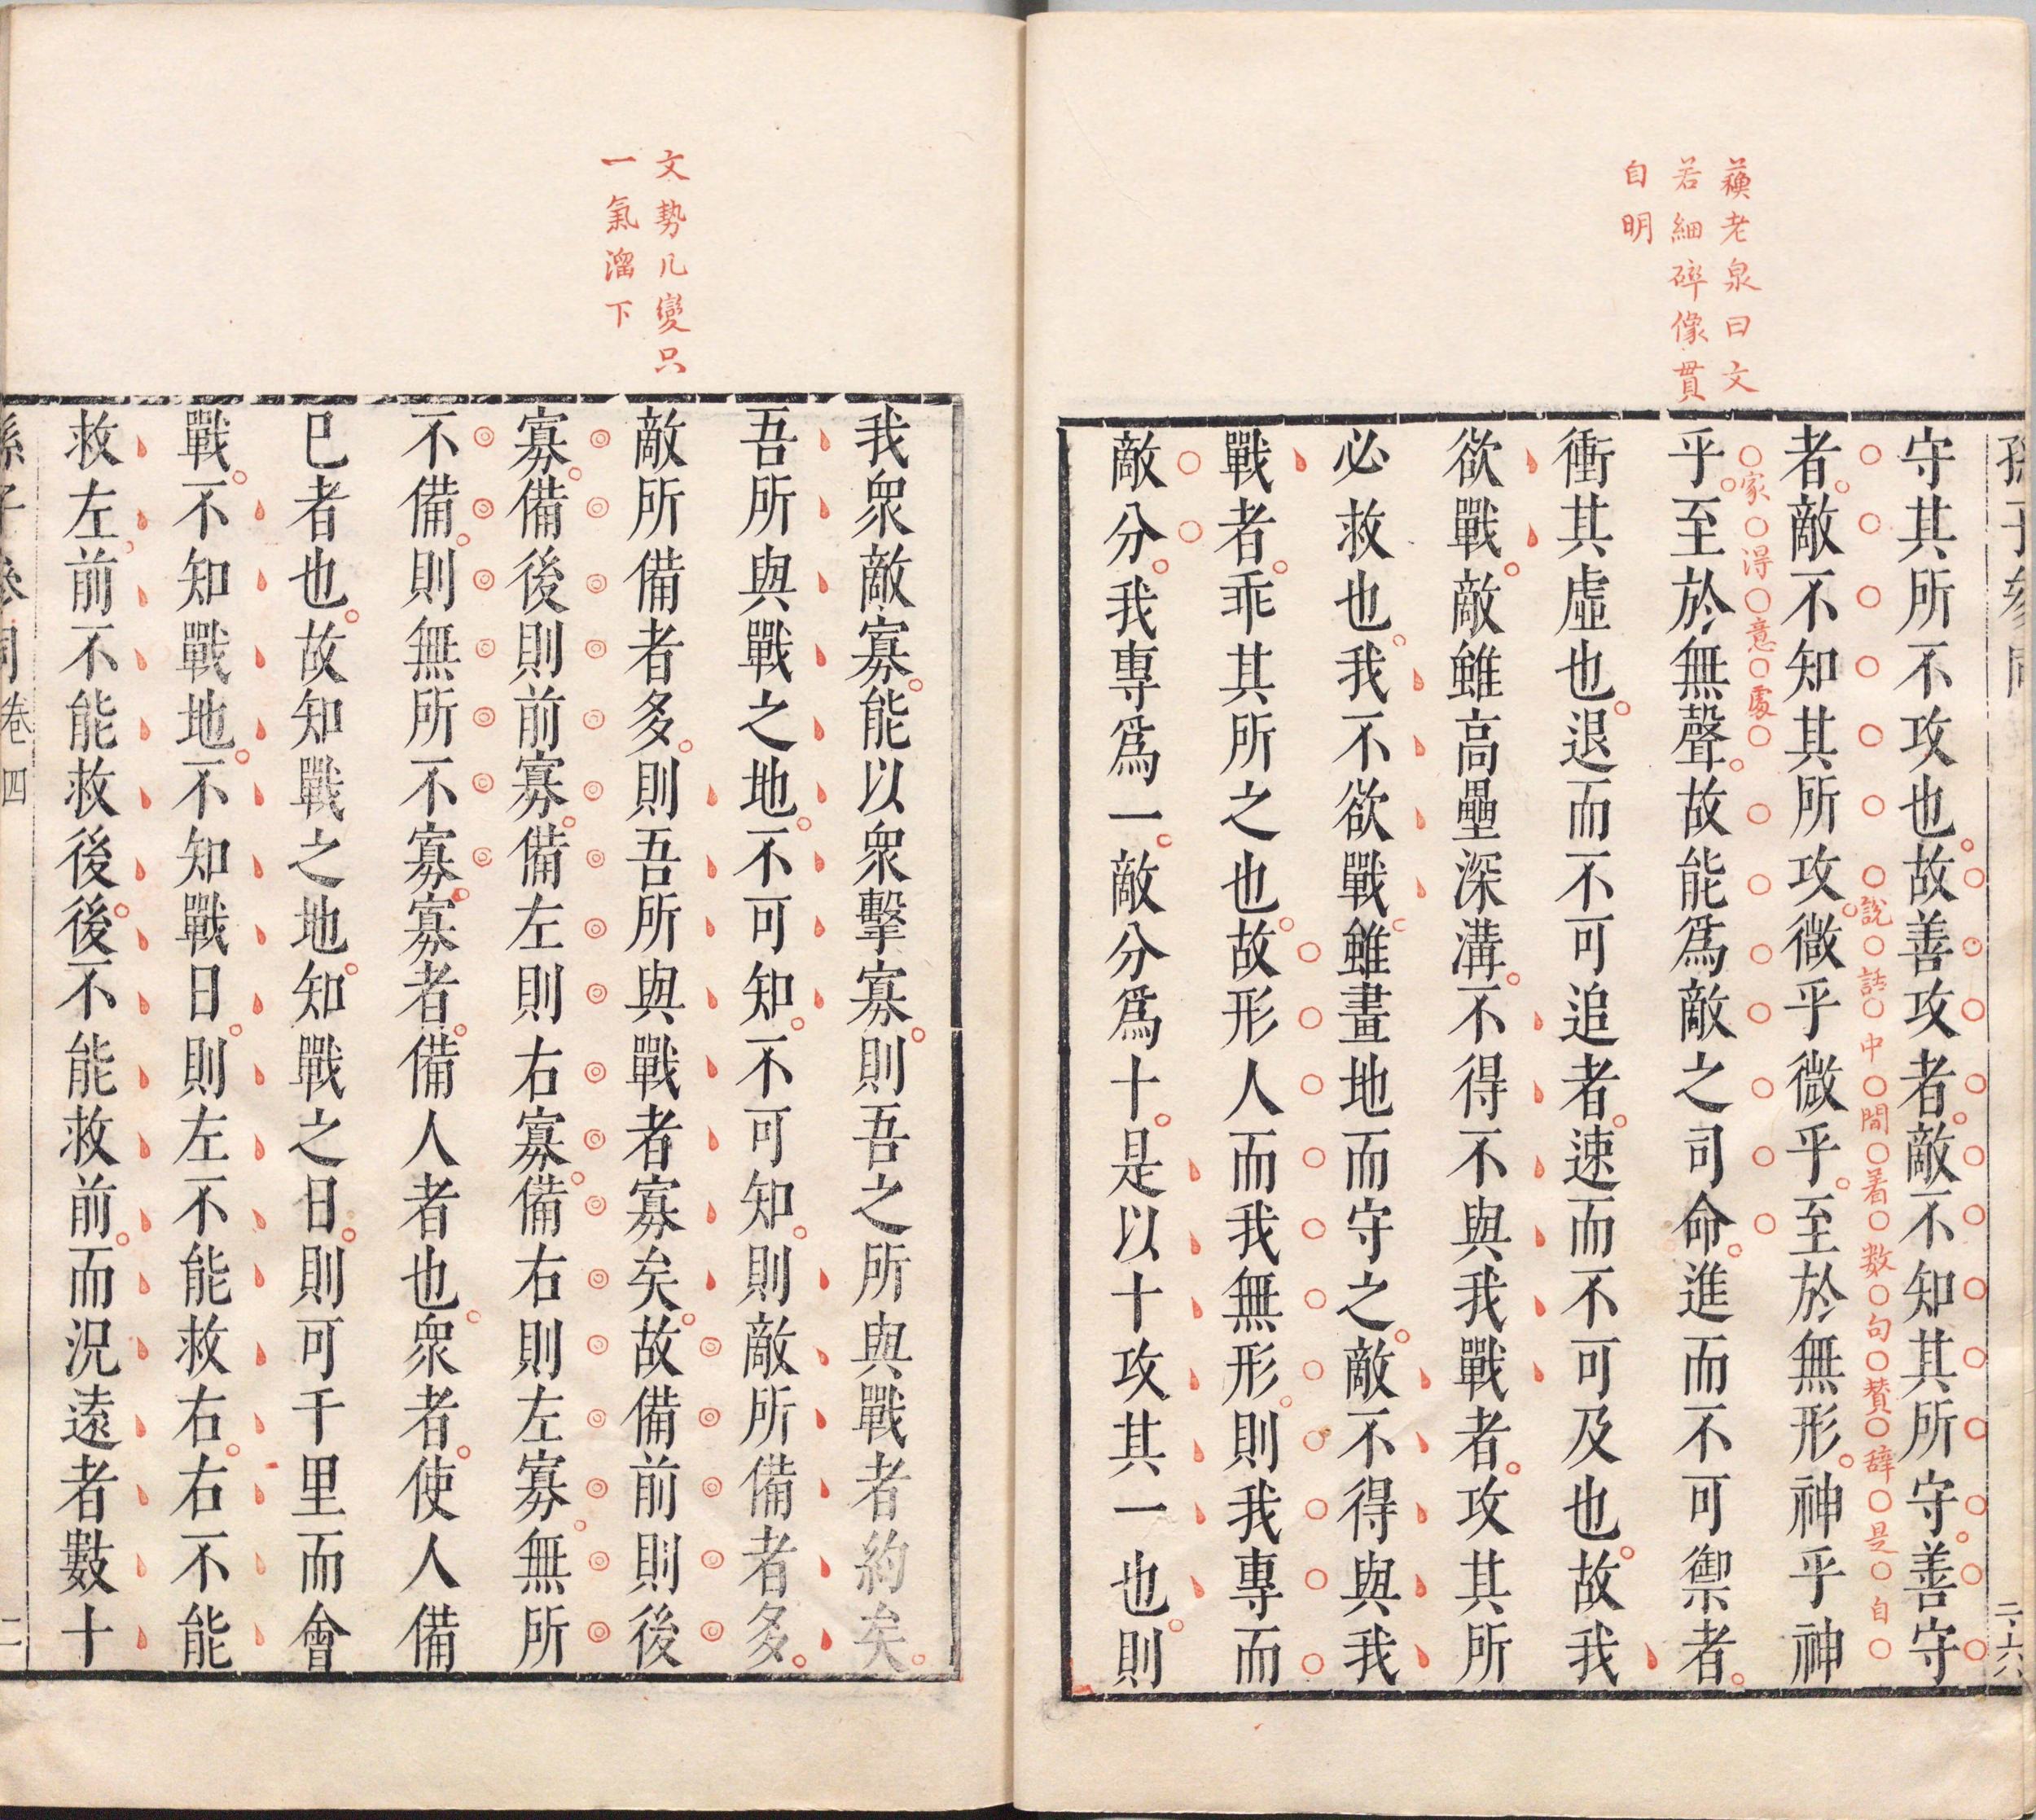 蘓老泉曰文
若細碎像貫
自明
守其所不攻也故善攻者敵不知其所守善守
者敵不知其所攻微乎微乎至於無形神乎神
說話中間着数句賛辭是自
家得意處
乎至於無聲故能爲敵之司命進而不可禦者
衝其虛也退而不可追者速而不可及也故我
欲戰敵雖高壘深溝不得不與我戰者攻其所
必救也我不欲戰雖畫地而守之敵不得與我
戰者乖其所之也故形人而我無形則我專而
敵分我專爲一敵分爲十是以十攻其一也則
文勢几變只
一氣溜下
我衆敵寡能以衆擊寡則吾之所與戰者約矣
吾所與戰之地不可知不可知則敵所備者多
敵所備者多則吾所與戰者寡矣故備前則後
寡備後則前寡備左則右寡備右則左寡無所
不備則無所不寡寡者備人者也衆者使人備
巳者也故知戰之地知戰之日則可千里而會
戰不知戰地不知戰日則左不能救右右不能
救左前不能救後後不能救前而況遠者數十
卷四
二